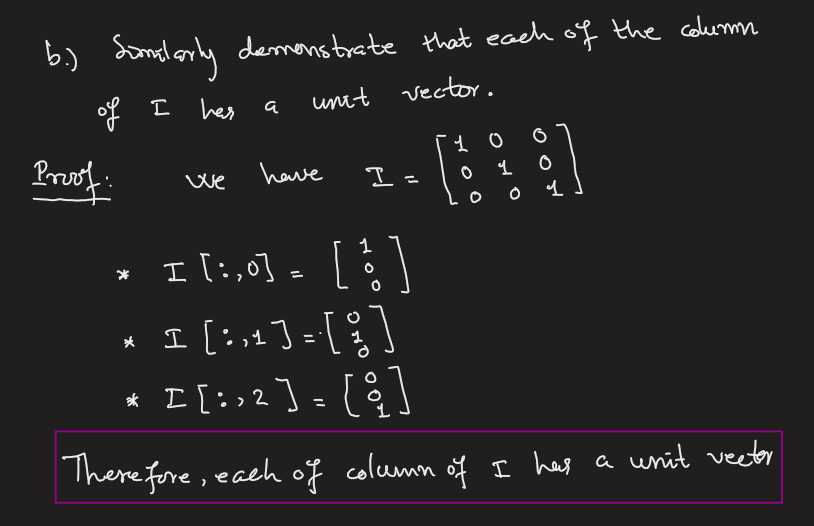 b.) Similarly demonstrate that each of the column
of I has a unit vector.
Proof: we have I = [1 0 0
0 1 0
0 0 1]
* I [:,0] = [1 0 0]
* I [:,1] = [0 1 0]
* I [:,2] = [0 0 1]
Therefore, each of column of I has a unit vector